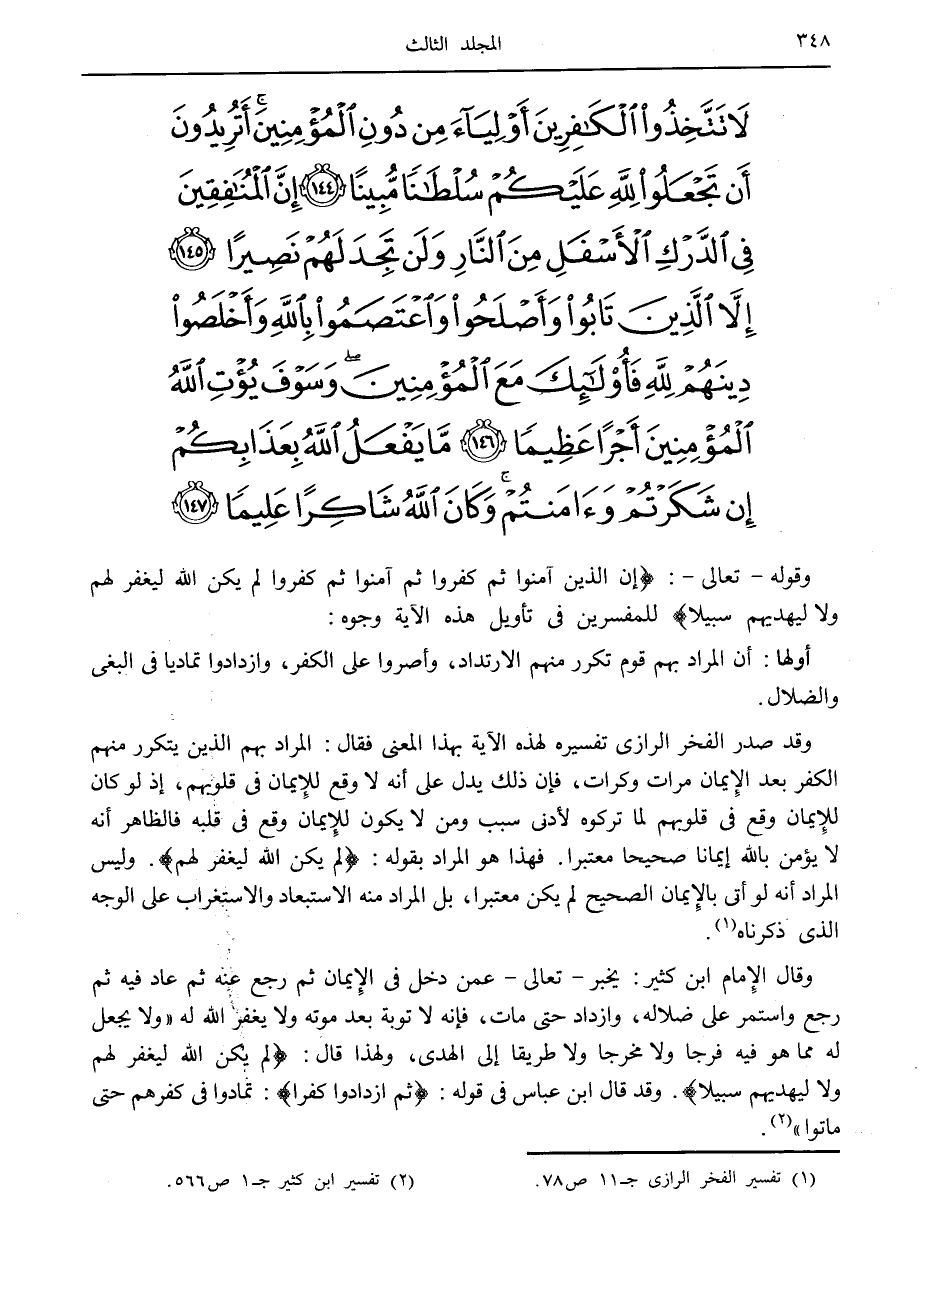 ٣٤٨
المجلد الثالث
لَا تَتَّخِذُوا۟ ٱلْكَـٰفِرِينَ أَوْلِيَآءَ مِن دُونِ ٱلْمُؤْمِنِينَ ۚ أَتُرِيدُونَ
أَن تَجْعَلُوا۟ لِلَّهِ عَلَيْكُمْ سُلْطَـٰنًا مُّبِينًا ١٤٤ إِنَّ ٱلْمُنَـٰفِقِينَ
فِى ٱلدَّرْكِ ٱلْأَسْفَلِ مِنَ ٱلنَّارِ وَلَن تَجِدَ لَهُمْ نَصِيرًا ١٤٥
إِلَّا ٱلَّذِينَ تَابُوا۟ وَأَصْلَحُوا۟ وَٱعْتَصَمُوا۟ بِٱللَّهِ وَأَخْلَصُوا۟
دِينَهُمْ لِلَّهِ فَأُو۟لَـٰٓئِكَ مَعَ ٱلْمُؤْمِنِينَ ۖ وَسَوْفَ يُؤْتِ ٱللَّهُ
ٱلْمُؤْمِنِينَ أَجْرًا عَظِيمًا ١٤٦ مَّا يَفْعَلُ ٱللَّهُ بِعَذَابِكُمْ
إِن شَكَرْتُمْ وَءَامَنتُمْ ۚ وَكَانَ ٱللَّهُ شَاكِرًا عَلِيمًا ١٤٧
وقوله – تعالى – : ﴿إن الذين آمنوا ثم كفروا ثم آمنوا ثم كفروا لم يكن الله ليغفر لهم
ولا ليهديهم سبيلا﴾ للمفسرين فى تأويل هذه الآية وجوه :
أولها : أن المراد بهم قوم تكرر منهم الارتداد، وأصروا على الكفر، وازدادوا تماديا فى البغى
والضلال.
وقد صدر الفخر الرازى تفسيره لهذه الآية بهذا المعنى فقال : المراد بهم الذين يتكرر منهم
الكفر بعد الإيمان مرات وكرات، فإن ذلك يدل على أنه لا وقع للإيمان فى قلوبهم، إذ لو كان
للإيمان وقع فى قلوبهم لما تركوه لأدنى سبب ومن لا يكون للإيمان وقع فى قلبه فالظاهر أنه
لا يؤمن بالله إيمانا صحيحا معتبرا. فهذا هو المراد بقوله : ﴿لم يكن الله ليغفر لهم﴾. وليس
المراد أنه لو أتى بالإيمان الصحيح لم يكن معتبرا، بل المراد منه الاستبعاد والاستغراب على الوجه
الذى ذكرناه(١).
وقال الإمام ابن كثير : يخبر – تعالى – عمن دخل فى الإيمان ثم رجع عنه ثم عاد فيه ثم
رجع واستمر على ضلاله، وازداد حتى مات، فإنه لا توبة بعد موته ولا يغفر الله له «ولا يجعل
له مما هو فيه فرجا ولا مخرجا ولا طريقا إلى الهدى، ولهذا قال : ﴿لم يكن الله ليغفر لهم
ولا ليهديهم سبيلا﴾. وقد قال ابن عباس فى قوله : ﴿ثم ازدادوا كفرا﴾ : تمادوا فى كفرهم حتى
ماتوا»(٢).
(١) تفسير الفخر الرازى جـ١١ ص٧٨.
(٢) تفسير ابن كثير جـ١ ص٥٦٦.